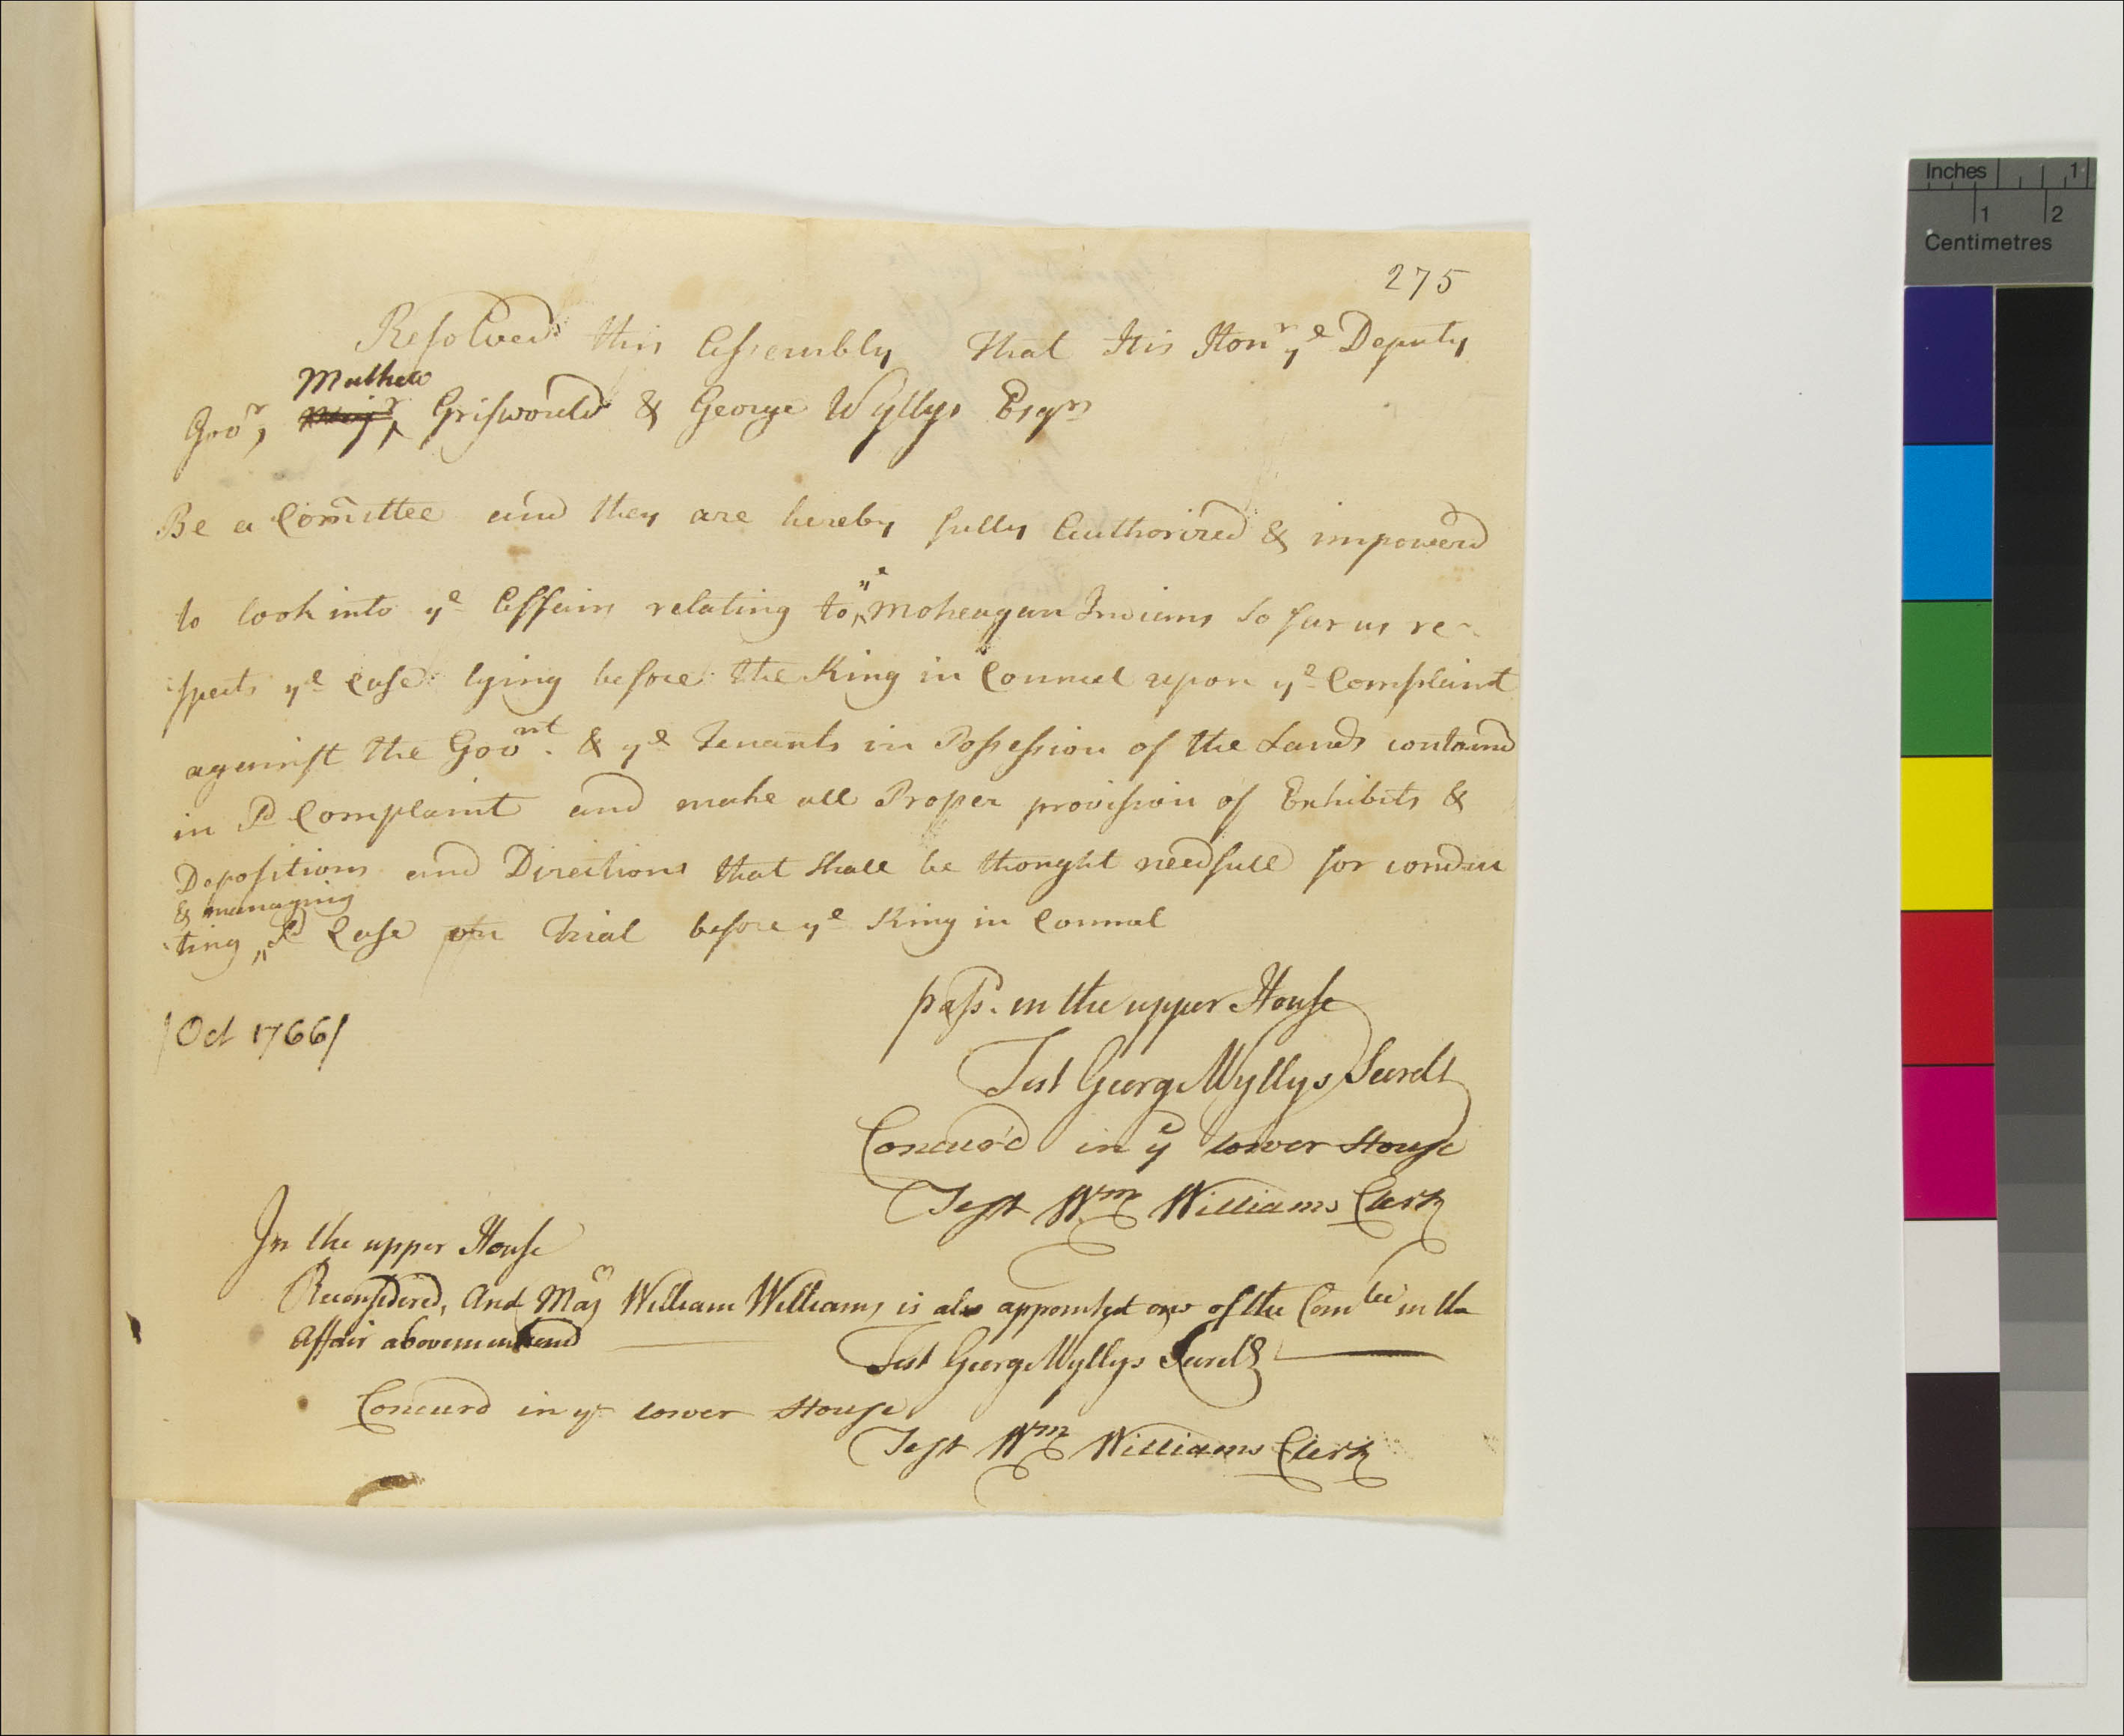 275
Resolved this Assembly that His Honr ye Deputy
Mathew
Govr, Majr Griswould & George Wyllys Esqrs
Be a Comittee and they are hereby fully Authorized & impowerd
to look into ye Affairs relating to ye Moheagan Indians so far as re-
spects ye Case lying before the King in Councel upon ye Complaint
against the Govnt. & ye Tenants in Possession of the Lands containd
in sd Complaint and make all Proper provision of Exhibits &
Depositions and Directions that shall be thought needfull for conduc
& managing
ting sd Case on Trial before ye King in Councel
pass. in the upper House
[Oct 1766]
Test George Wyllys Secrety
Concur'd in ye lower House
Test Wm Williams Clerk
In the upper House
Reconsidered, And Majr William Williams is also appointed one of the Comtee in the
Affair abovementiond
Test George Wyllys Secrety
Concurd in ye lower House
Test Wm Williams Clerk
Inches 1
1 2
Centimetres